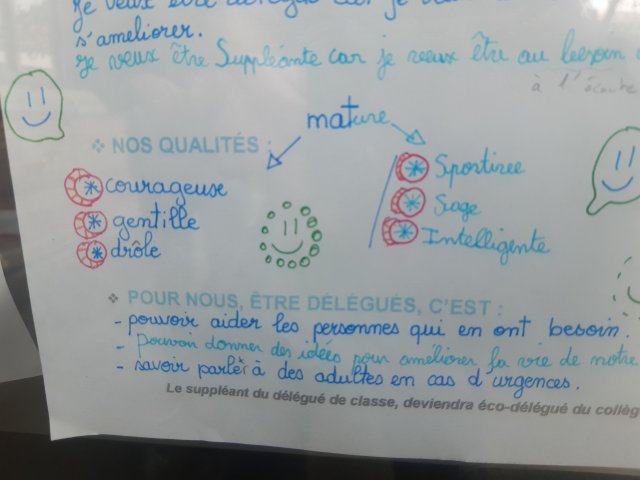 je veux être déléguée car je veux
s'ameliorer.
je veux être Suppléante car je veux être au besoin
à l'écoute
mature
NOS QUALITÉS :
courageuse
gentille
drôle
Sportive
Sage
Intelligente
POUR NOUS, ÊTRE DÉLÉGUÉS, C'EST :
- pouvoir aider les personnes qui en ont besoin.
- pouvoir donner des idées pour améliorer la vie de notre
- savoir parler à des adultes en cas d'urgences.
Le suppléant du délégué de classe, deviendra éco-délégué du collèg